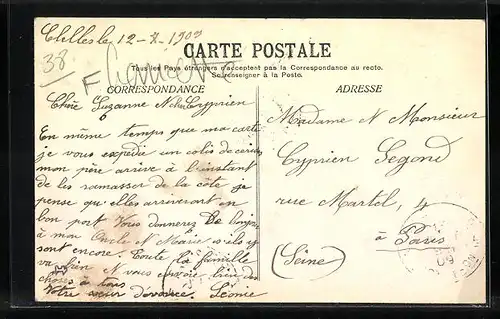 Clelles le 12-7-1909
CARTE POSTALE
38
Tous les Pays étrangers n'acceptent pas la Correspondance au recto.
Se renseigner à la Poste.
F
CORRESPONDANCE
ADRESSE
Chère Suzanne N Cher Cyprien
En même temps que ma carte
je vous expédie un colis de cerises
mon père arrive à l'instant
de les ramasser de la côte je
pense que elles arriveront en
bon port Vous donnerez De
à mon Oncle N Marie s'ils y
sont encore. Toute la famille
va bien N vous envoie bien des
choses à tous
Votre sœur dévouée. Léonie
Madame N Monsieur
Cyprien Segond
rue Martel, 4
à Paris
(Seine)